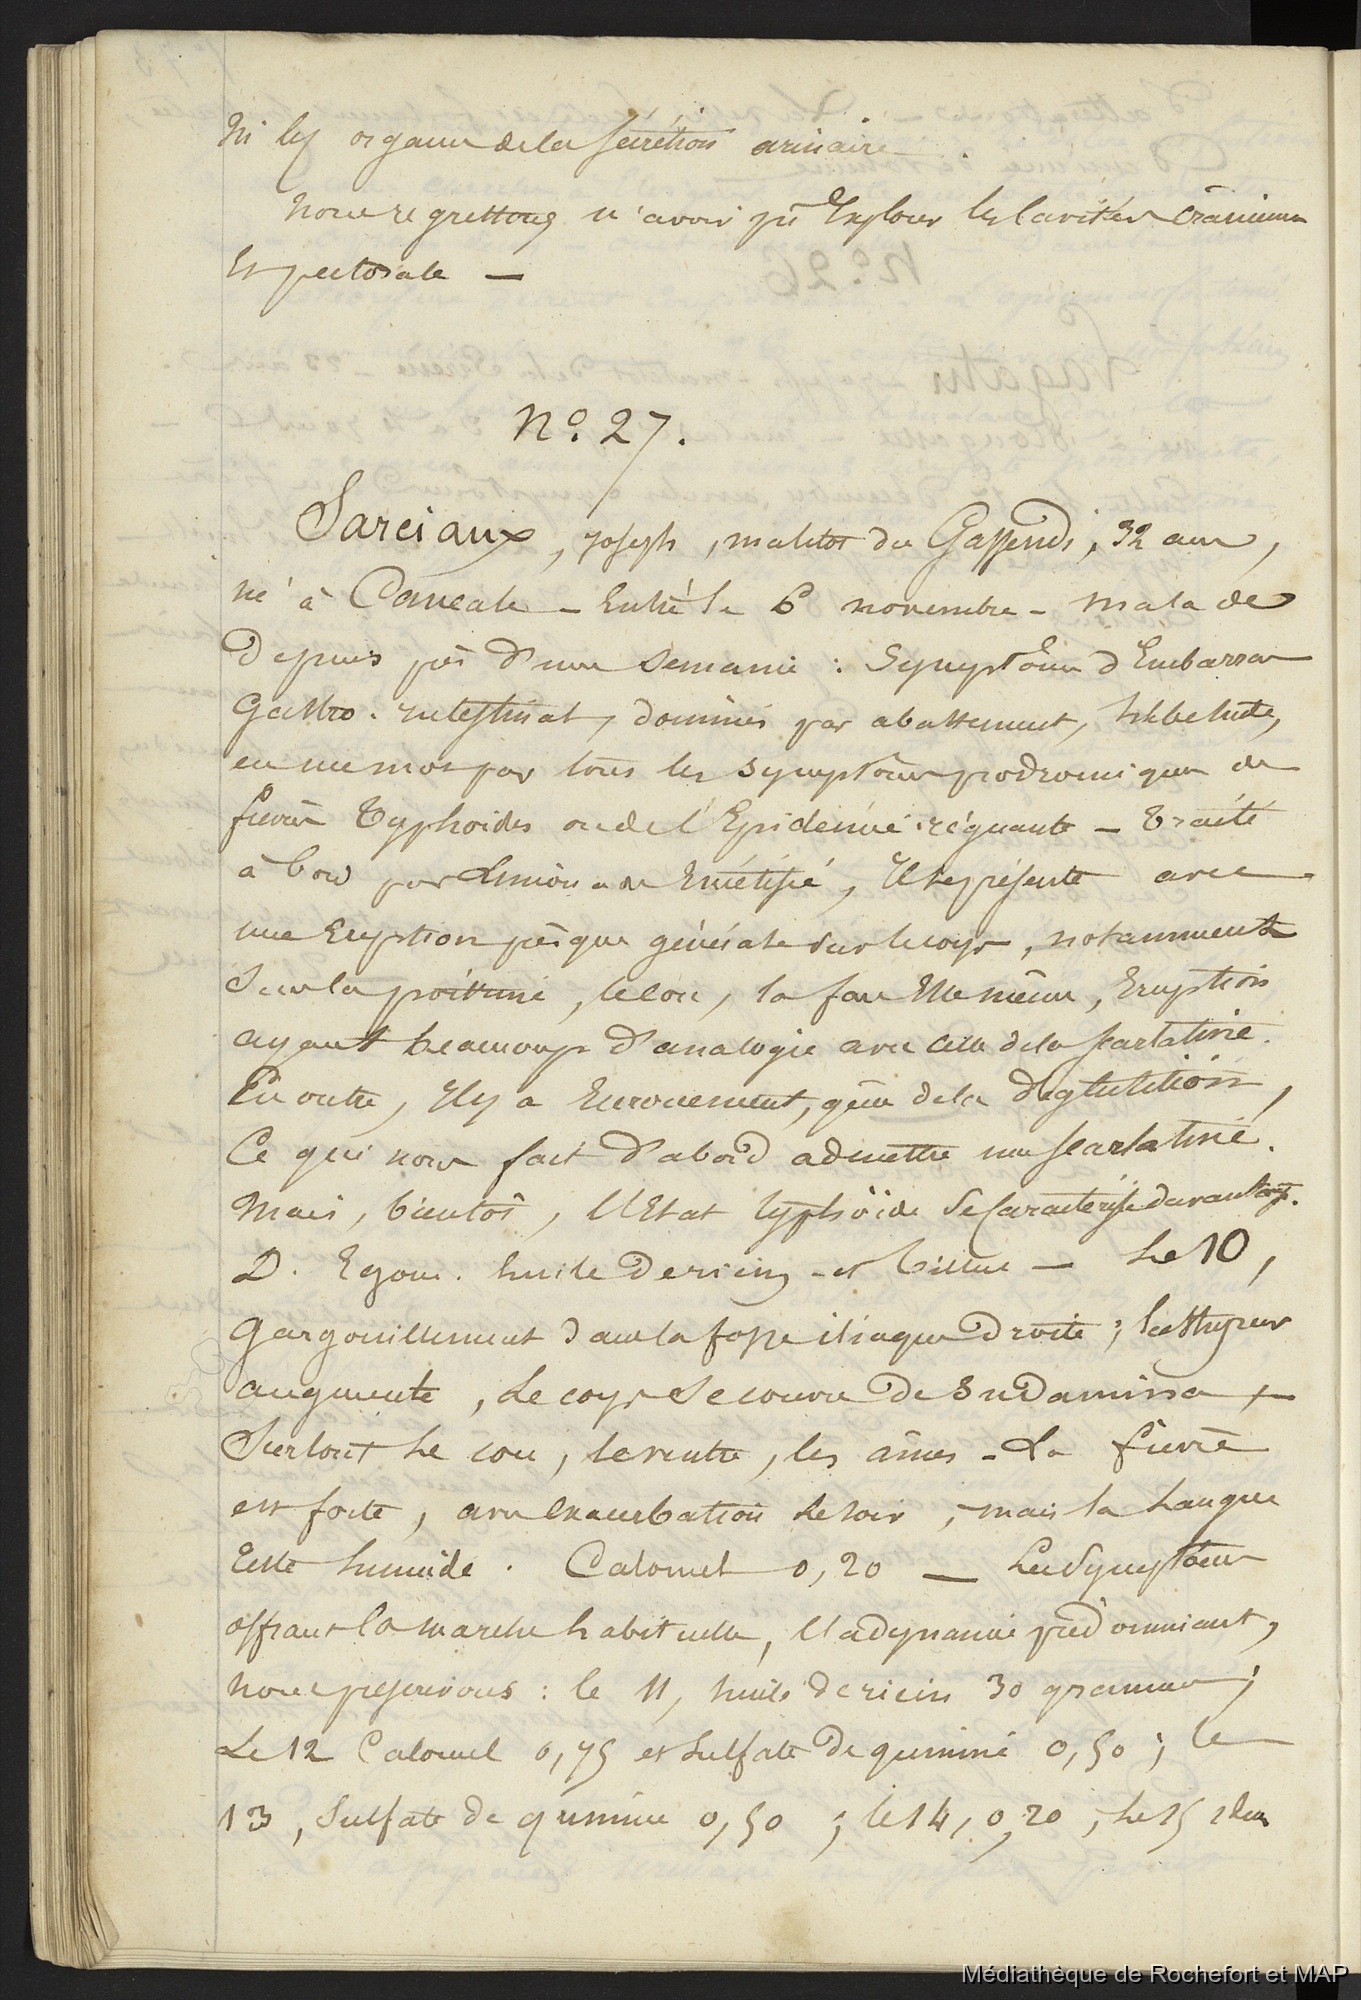 ni les organes de la sécrétion urinaire.
Nous regrettons n'avoir pu Explorer les Cavités Crânienne
Et pectorale —
N.º 27.
Sarciaux, Joseph, matelot du Gassendi, 32 ans,
né à Cancale — Entré le 6 novembre — malade
Depuis près d'une Semaine : Symptômes d'Embarras
Gastro-intestinal, dominés par abattement, hébétude,
en un mot par tous les Symptômes prodromiques de
fièvre Typhoïdes ou de l'Epidémie régnante — Traité
à bord par Limonade Emétisée, Il se présente avec
une Eruption presque générale sur le corps, notamment
Sur la poitrine, le cou, la face Elle même, Eruption
ayant beaucoup d'analogie avec celle de la scarlatine.
En outre, Il y a Enrouement, gêne de la déglutition,
Ce qui nous fait d'abord admettre une scarlatine.
Mais, bientôt, l'Etat typhoïde Se Caractérise davantage.
D. Egom. huile de ricin — et Tilleul — Le 10,
Gargouillement dans la fosse iliaque Droite ; la stupeur
augmente, Le corps Se couvre De Sudamina,
Surtout Le cou, le ventre, les aines — La fièvre
est forte, avec exacerbation le soir ; mais la Langue
Reste humide. Calomel 0,20 — Les Symptômes
offrant la marche habituelle, l'adynamie prédominant,
nous prescrivons : le 11, huile de ricin 30 grammes ;
Le 12 Calomel 0,75 et Sulfate de quinine 0,50 ; le
13, Sulfate de quinine 0,50 ; le 14, 0,20 ; Le 15 idem
Médiathèque de Rochefort et MAP